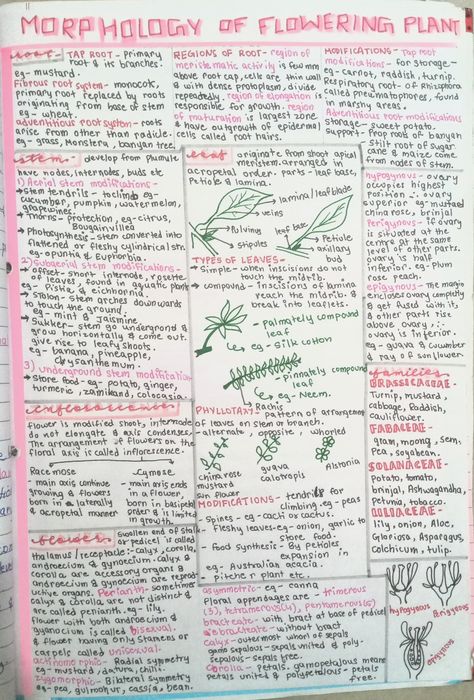 MORPHOLOGY OF FLOWERING PLANT
Root - TAP ROOT - primary
root & its branches.
eg - mustard.
Fibrous root system - monocots,
primary root replaced by roots
originating from base of stem
eg - wheat.
adventitious root system - roots
arise from other than radicle.
eg - grass, Monstera, banyan tree.
REGIONS OF ROOT - region of
meristematic activity is few mm
above root cap, cells are thin wall
& with dense protoplasm, divide
repeatedly. region of elongation is
responsible for growth. region
of maturation is largest zone
& have outgrowth of epidermal
cells called root hairs.
MODIFICATIONS - Tap root
modifications - for storage -
eg - carrot, raddish, turnip.
Respiratory root - of Rhizophora
called pneumatophores, found
in marshy areas.
Adventitious root modifications
storage - sweet potato.
Support - Prop roots of banyan
- stilt root of sugar
cane & maize come
from nodes of stem.
Stem - develop from plumule
have nodes, internodes, buds etc
1) Aerial stem modifications -
→ Stem tendrils - to climb eg -
cucumber, pumpkin, watermelon,
grapevines.
→ Thorns - protection, eg - citrus,
Bougainvillea
→ Photosynthesis - stem converted into
flattened or fleshy cylindrical sts
eg - opuntia & Euphorbia.
2) Subaerial stem modifications -
→ offset - shorter internode, rosette
of leaves, found in aquatic plants
eg - Pistia, & eichhornia.
→ Stolon - stem arches downwards
to touch the ground,
eg - mint & Jasmine.
→ Sukker - stem go underground &
grow horizontally & come out.
give rise to leafy shoots.
eg - banana, pineapple,
chrysanthemum.
3) underground stem modification
→ Store food - eg - potato, ginger,
turmeric, zaminkand, colocasia.
Leaf - originate from shoot apical
meristem. arranged in
acropetal order. parts - leaf base,
Petiole & lamina.
lamina/leaf blade
veins
Pulvinus
stipules
leaf base
Petiole
axillary
bud
TYPES OF LEAVES -
→ Simple - when inscisions do not
touch the midrib.
→ compound - inscisions of lamina
reach the midrib &
break into leaflets.
Palmately compound
leaf
eg - Silk cotton
Pinnately compound
leaf
eg - Neem.
Rachis
PHYLLOTAXY - pattern of arrangement
of leaves on stem or branch.
- alternate, opposite, whorled
china rose
mustard
sun flower
guava
calotropis
Alstonia
MODIFICATIONS - tendrils for
climbing. eg - peas
- Spines - eg - cacti or cactus.
- Fleshy leaves - eg - onion, garlic to
store food.
- Food synthesis - By petioles
expansion in
eg - Australian acacia.
- pitcher plant etc.
hypogynous - ovary
occupies highest
position ∴ ovary
superior eg - mustard
china rose, brinjal
Perigynous - if ovary
is situated at the
centre at the same
level of other parts.
ovary is half
inferior. eg - plum
rose peach.
epigynous - The margin
encloses ovary completely
& get fused with it,
& other parts rise
above ovary, ∴
ovary is inferior.
eg - guava & cucumber
& ray of sunflower.
Inflorescence
flower is modified shoot, internode
do not elongate & axis condenses.
The arrangement of flowers on the
floral axis is called inflorescence.
Racemose
- main axis continue
growing & flowers
born in laterally
& acropetal manner
Cymose
- main axis ends
in a flower,
born in basipetal
order & is limited
in growth.
families
BRASSICACEAE -
Turnip, mustard,
cabbage, Raddish,
cauliflower.
FABACEAE -
gram, moong, sem,
Pea, soyabean.
SOLANACEAE -
Potato, tomato,
brinjal, Ashwagandha,
petunia, tobacco.
LILIACEAE -
lily, onion, Aloe,
Gloriosa, Asparagus,
Colchicum, tulip.
flower - Swollen end of stalk
or pedicel is called
thalamus/receptacle :- calyx, corolla,
androecium & gynoecium. calyx &
corolla are accessory organs &
androecium & gynoecium are reprod
uctive organs. Perianth - sometimes
calyx & corolla are not distinct &
are called perianth. eg - lily.
flower with both androecium &
gynoecium is called bisexual.
& flower having only Stamens or
carpels called unisexual.
actinomorphic - Radial symmetry
eg - mustard, datura, chilli.
zygomorphic - Bilateral symmetry
eg - pea, gulmohur, cassia, bean.
asymmetric - eg - canna
Floral appendages are - trimerous
(3), tetramerous (4), pentamerous (5)
bracteate - with bract at base of pedicel
ebracteate - without bract
calyx - (outermost whorl of sepals)
gamosepalous - sepals united & poly -
sepalous - sepals free.
Corolla - petals, gamopetalous means
petals united & polypetalous - petals
free.
hypogynous
Perigynous
epigynous